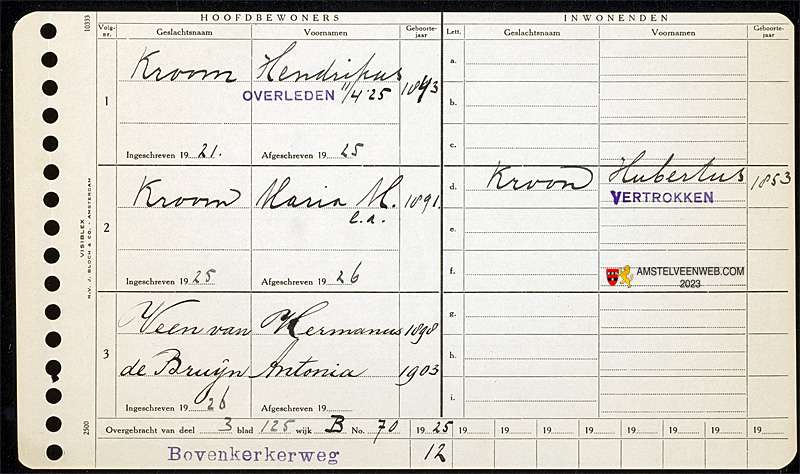 HOOFDBEWONERS
INWONENDEN
Volg-nr. Geslachtsnaam Voornamen Geboorte-jaar
Lett. Geslachtsnaam Voornamen Geboorte-jaar
1 Kroom Hendrikus 1843
OVERLEDEN 11/4'25
Ingeschreven 19 21. Afgeschreven 19 25
a.
b.
c.
2 Kroom Maria M. 1891.
e.a.
Ingeschreven 19 25 Afgeschreven 19 26
d. Kroon Hubertus 1853
VERTROKKEN
e.
f.
AMSTELVEENWEB.COM
2023
3 Veen van Hermanus 1898
de Bruijn Antonia 1903
Ingeschreven 19 26 Afgeschreven 19
g.
h.
i.
Overgebracht van deel 3 blad 125 wijk B No. 70 19 25 19 19 19 19 19 19 19 19
Bovenkerkerweg 12
10333
VISIBLEX
N.V. J. BLOCH & CO. - AMSTERDAM
2500